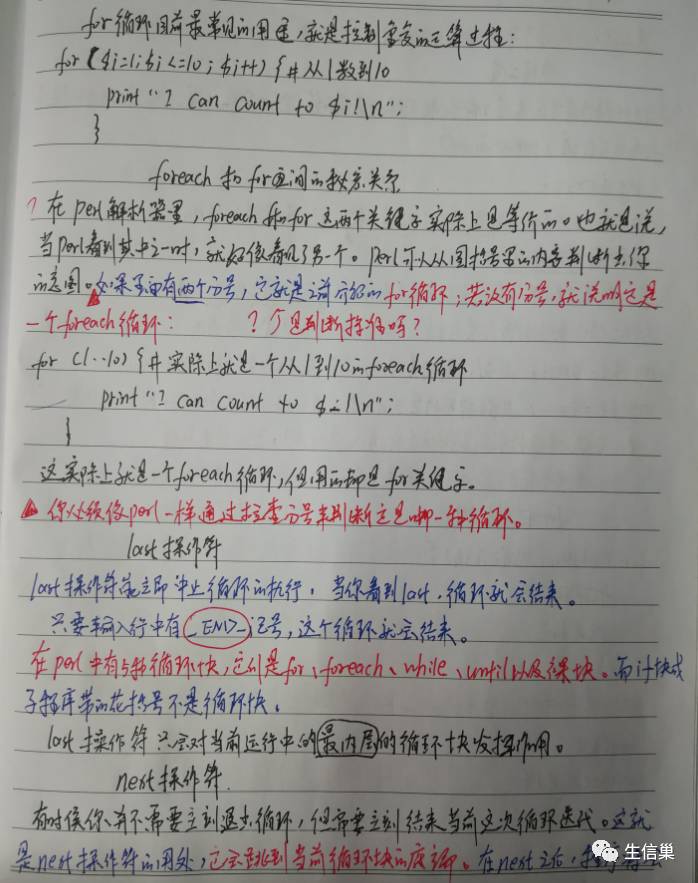 for循环目前最常见的用途，就是控制重复的运算过程：
for ($i=1;$i<=10;$i++) {#从1数到10
print "I can count to $i!\n";
}
foreach和for之间的秘密关系
? 在perl解析器里，foreach和for这两个关键字实际上是等价的。也就是说，
当perl看到其中之一时，就好像看见了另一个。perl可以从圆括号里的内容判断出你
的意图。如果里面有两个分号，它就是之前介绍的for循环；若没有分号，就说明这是
一个foreach循环： ? 个是判断择偶吗？
for (1..10) {#实际上就是一个从1到10的foreach循环
print "I can count to $i!\n";
}
这实际上就是一个foreach循环，但用的却是for关键字。
▲ 你必须像perl一样通过检查分号来判断这是哪一种循环。
last操作符
last操作符能立即中止循环的执行，当你看到last，循环就会结束。
只要输入行中有_END_记号，这个循环就会结束。
在perl中有5种循环块，它们是for、foreach、while、until以及裸块。而if块或
子程序带的花括号不是循环块。
last操作符只会对当前运行中的最内层的循环块发挥作用。
next操作符
有时候你并不需要立刻退出循环，但需要立刻结束当前这次循环迭代。这就
是next操作符的用处，它会跳到当前循环块的底部。在next之后，程序将会
生信巢